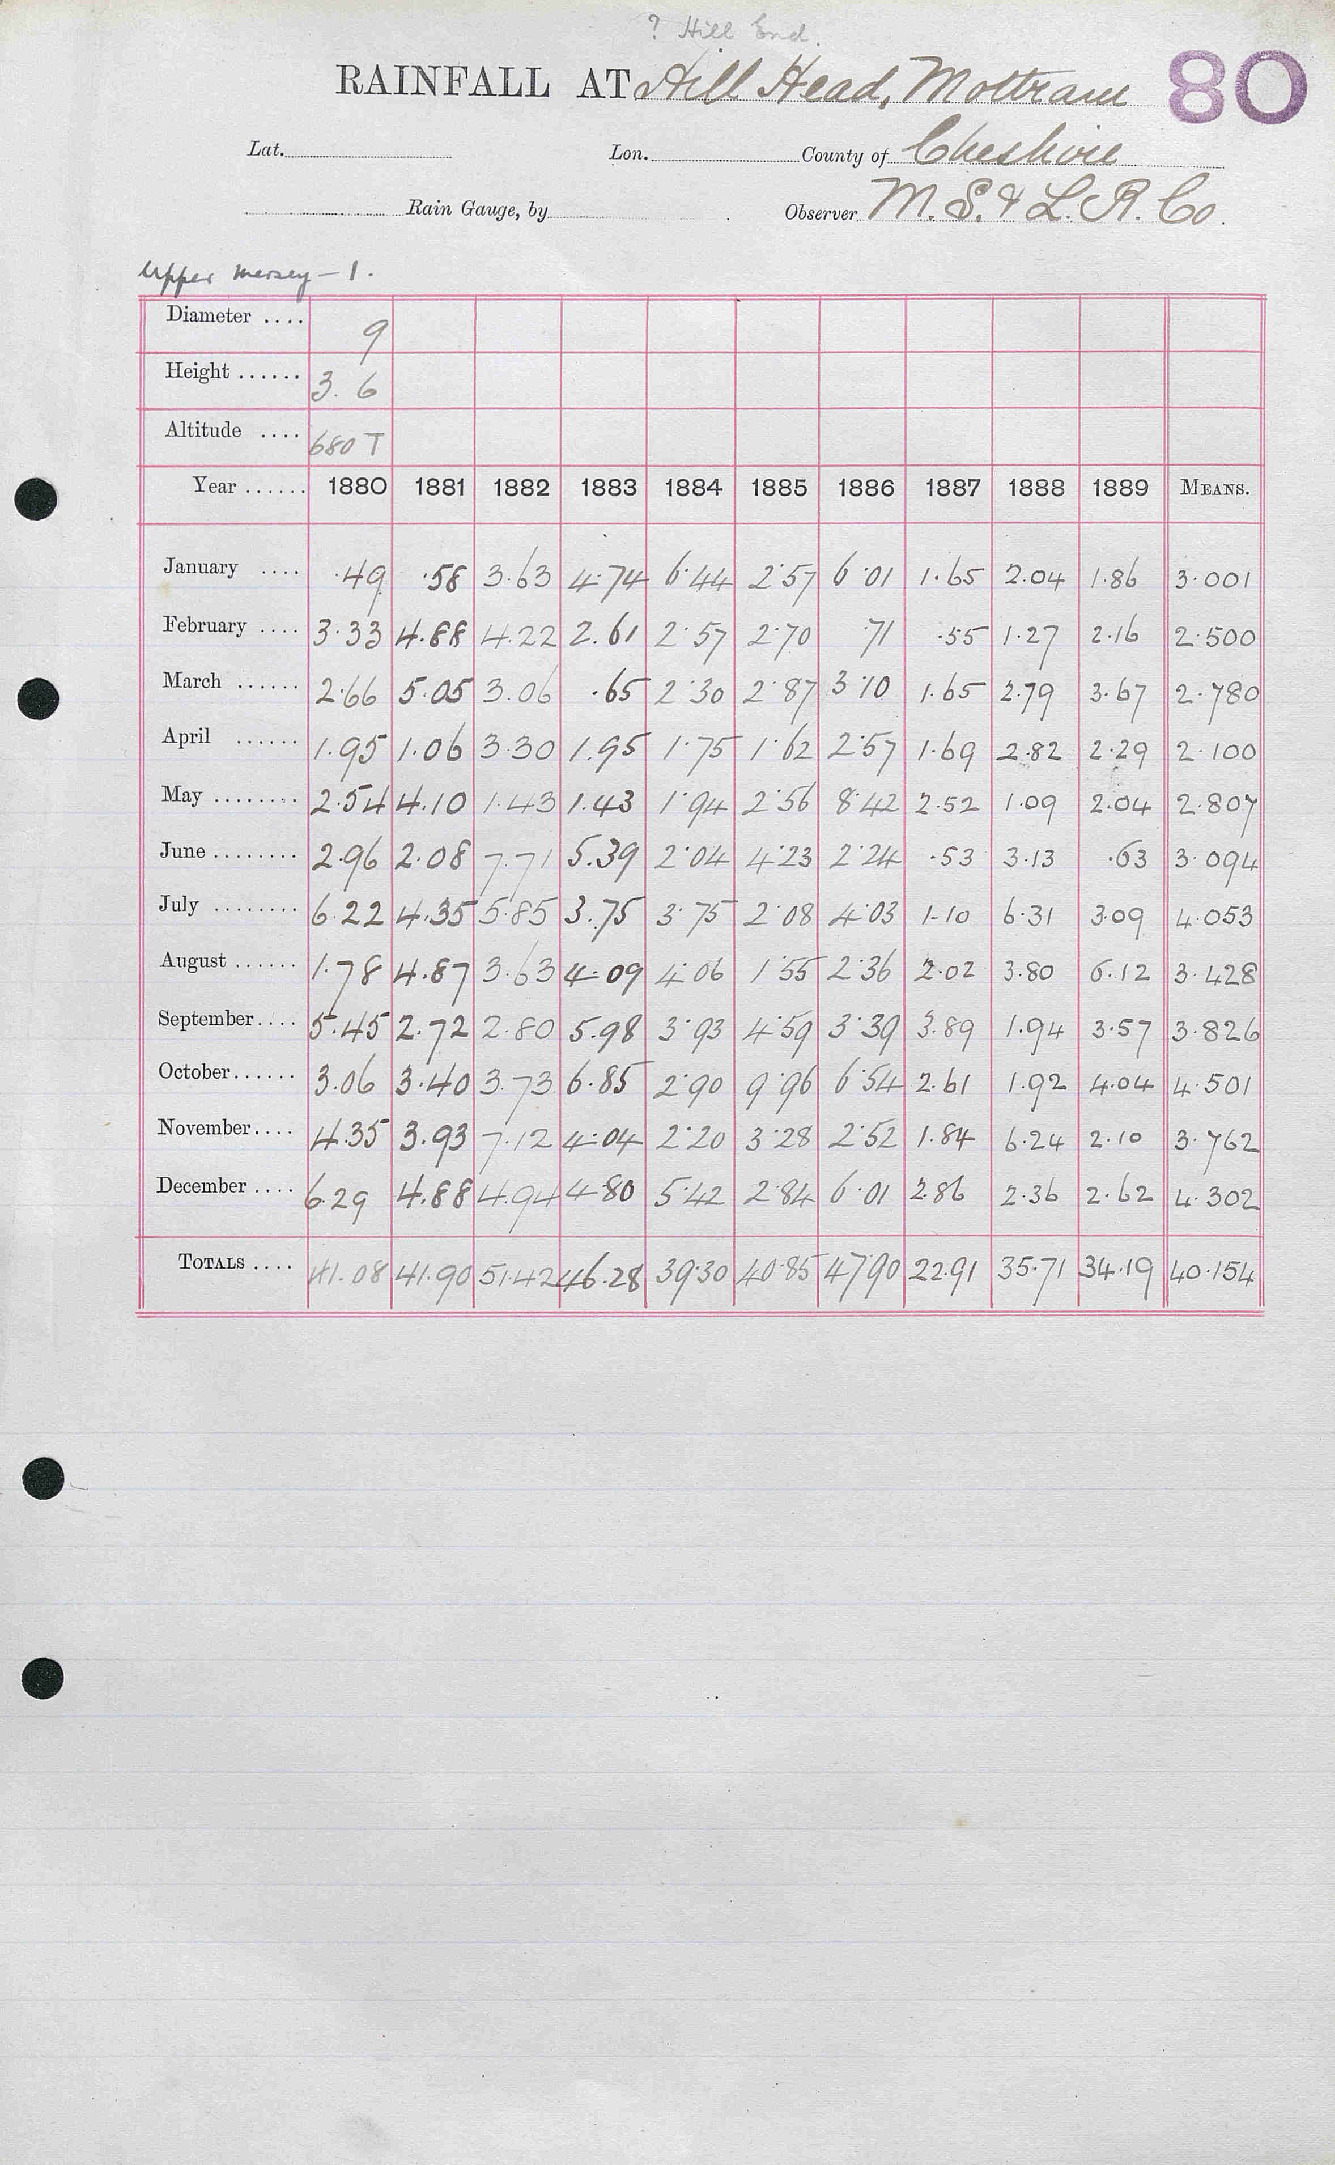 ? Hill End.
RAINFALL AT Hill Head, Mottram 80
Lat. Lon. County of Cheshire
Rain Gauge, by Observer M. S. & L. R. Co.
Upper Mersey – 1.
Diameter .... 9
Height ...... 3. 6
Altitude .... 680 T
Year ...... 1880 1881 1882 1883 1884 1885 1886 1887 1888 1889 MEANS.
January .... .49 .58 3.63 4.74 6.44 2.57 6.01 1.65 2.04 1.86 3.001
February .... 3.33 4.88 4.22 2.61 2.57 2.70 .71 .55 1.27 2.16 2.500
March ...... 2.66 5.05 3.06 .65 2.30 2.87 3.10 1.65 2.79 3.67 2.780
April ...... 1.95 1.06 3.30 1.95 1.75 1.62 2.57 1.69 2.82 2.29 2.100
May ........ 2.54 4.10 1.43 1.43 1.94 2.56 8.42 2.52 1.09 2.04 2.807
June ........ 2.96 2.08 7.71 5.39 2.04 4.23 2.24 .53 3.13 .63 3.094
July ........ 6.22 4.35 5.85 3.75 3.75 2.08 4.03 1.10 6.31 3.09 4.053
August ...... 1.78 4.87 3.63 4.09 4.06 1.55 2.36 2.02 3.80 6.12 3.428
September.... 5.45 2.72 2.80 5.98 3.93 4.59 3.39 3.89 1.94 3.57 3.826
October...... 3.06 3.40 3.73 6.85 2.90 9.96 6.54 2.61 1.92 4.04 4.501
November.... 4.35 3.93 7.12 4.04 2.20 3.28 2.52 1.84 6.24 2.10 3.762
December .... 6.29 4.88 4.94 4.80 5.42 2.84 6.01 2.86 2.36 2.62 4.302
TOTALS .... 41.08 41.90 51.42 46.28 39.30 40.85 47.90 22.91 35.71 34.19 40.154